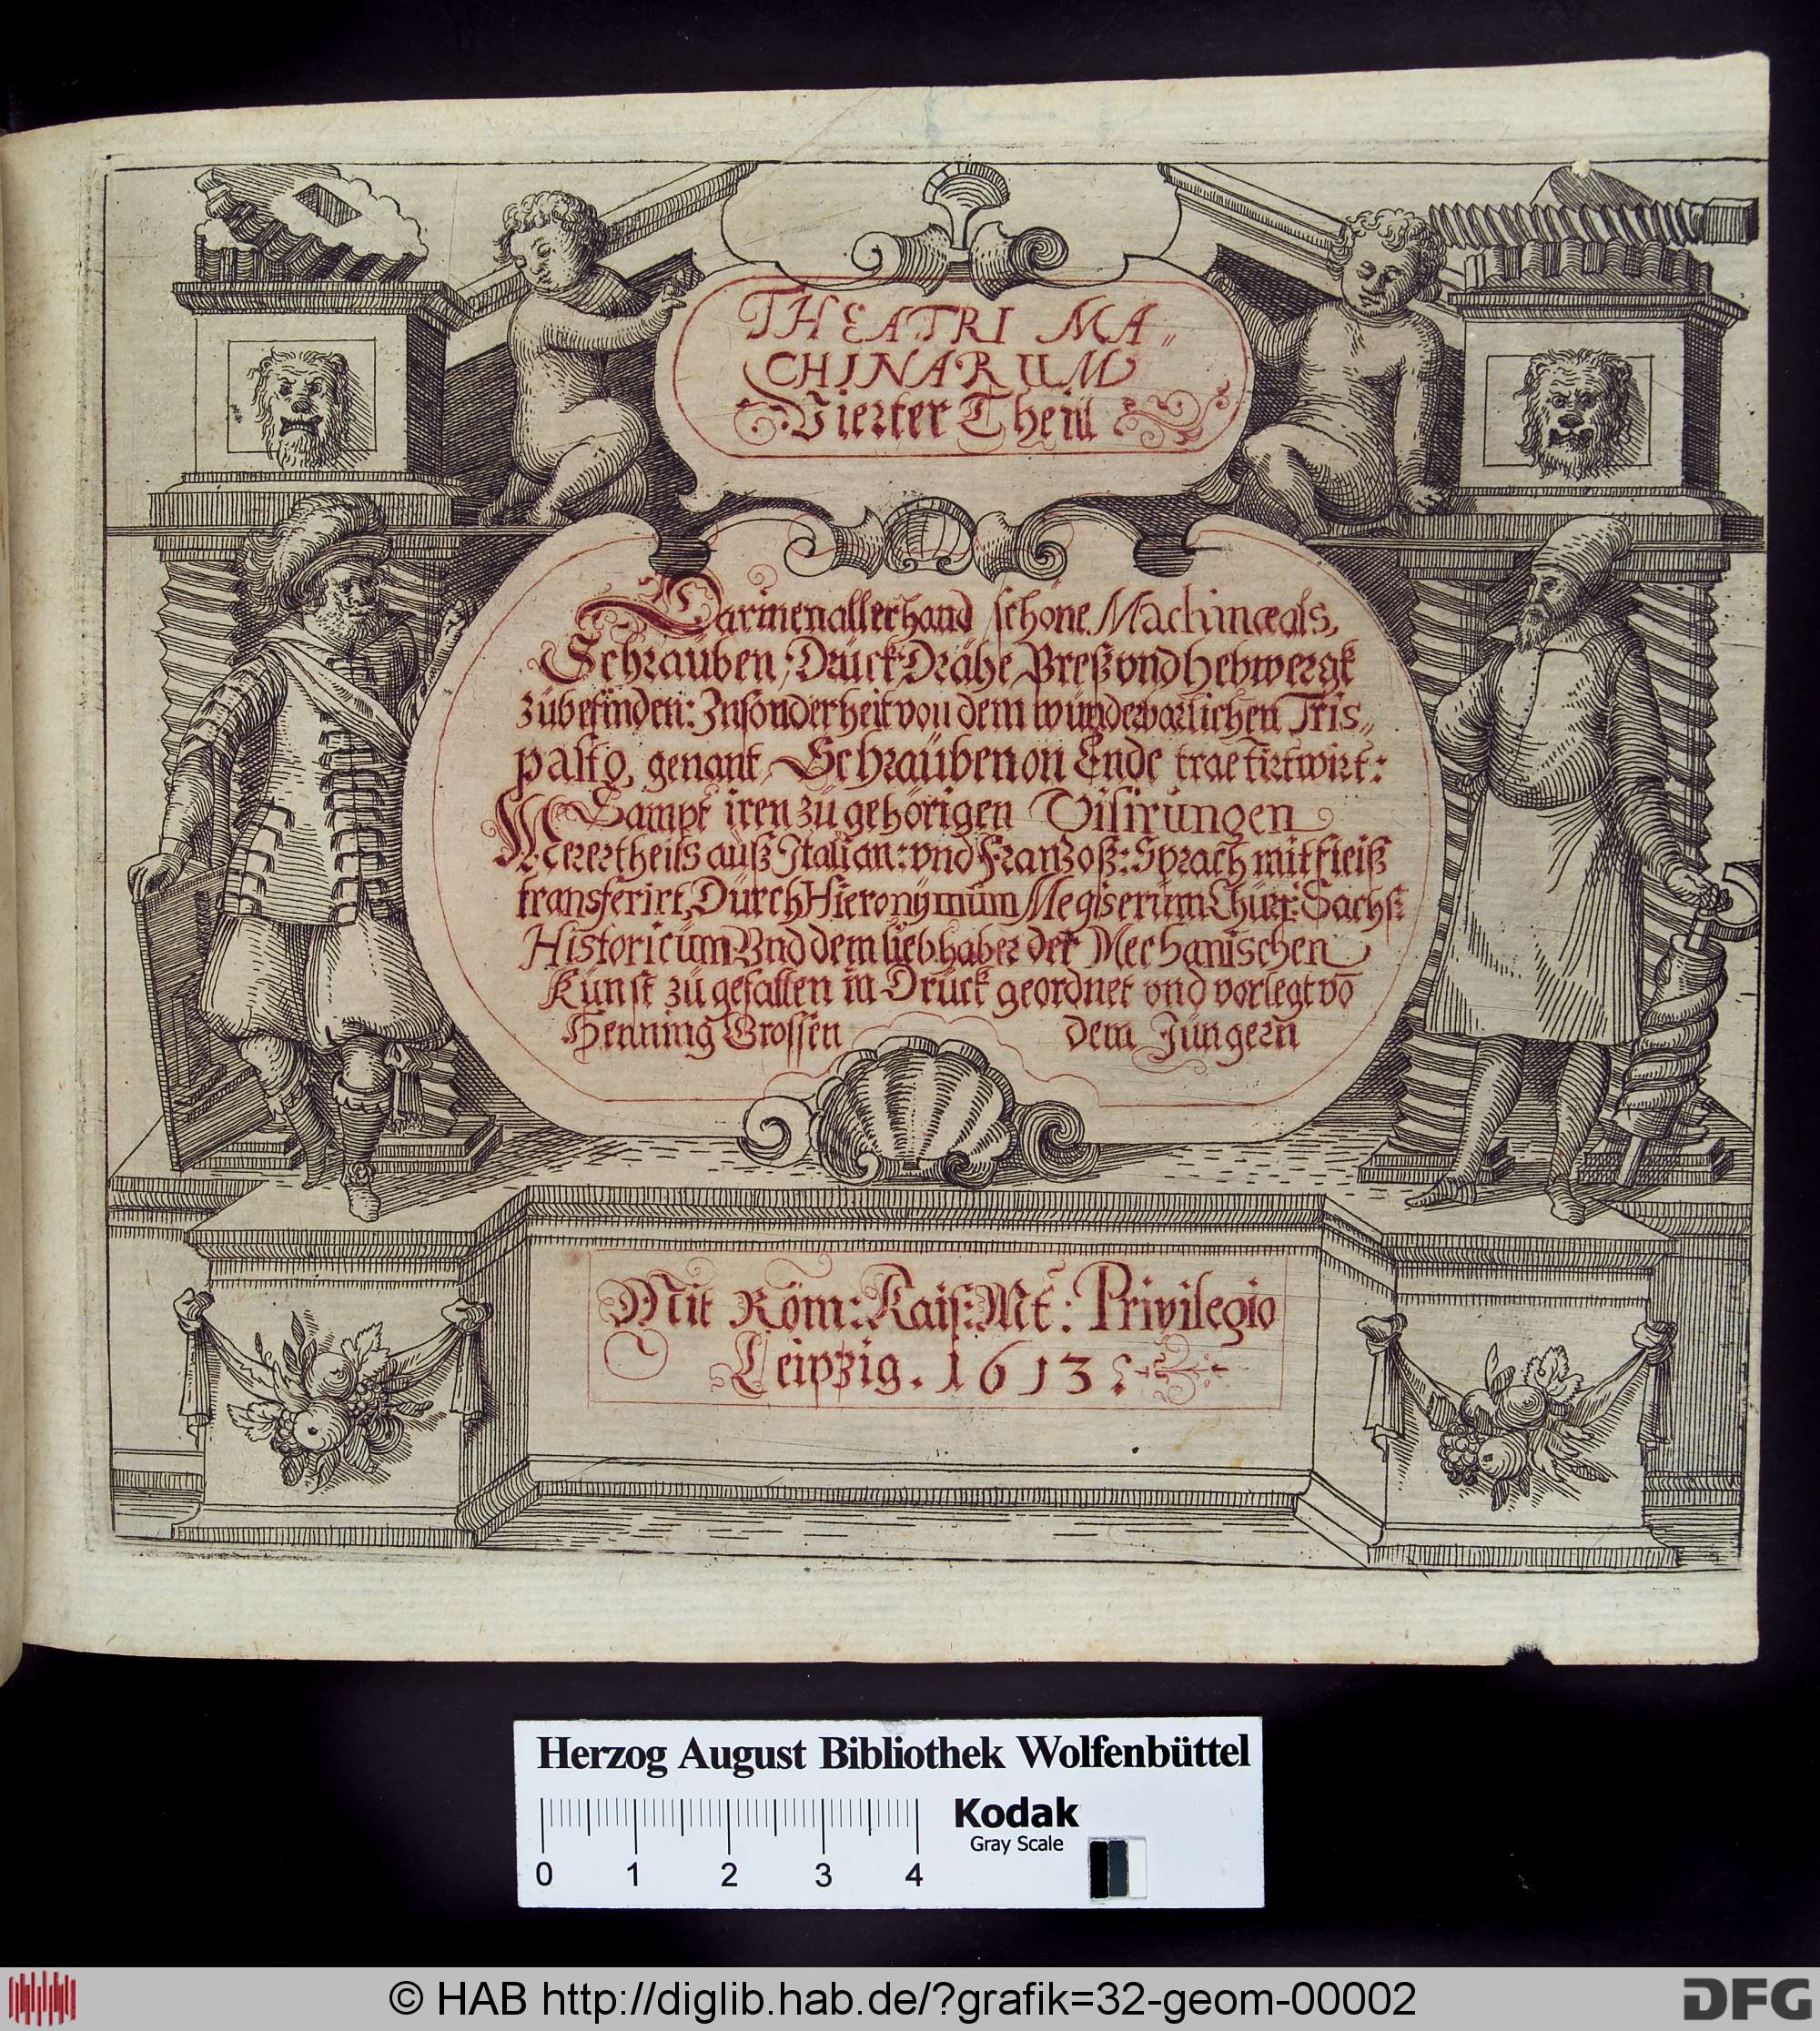 THEATRI MA„
CHINARUM
Vierter Theill
Darinen allerhand schöne Machinæ als,
Schrauben, Drück Drähe, Preß vnd Hebwergk
zübefinden: Insonderheit von dem wünderbarlichen Tris„
pasto, genant, Schraüben on Ende tractirt wirt:
Sampt iren zü gehörigen Visirüngen
Merertheils aüß Italian: vnd Franzoß: Sprach mit fleiß
transferirt, Dürch Hieronymüm Megiserüm Chürf: Sachß:
Historicüm Vnd dem liebhaber der Mechanischen
Künst zü gefallen in Drück geordnet vnd vorlegt vō
Henning Grossen dem Jüngern
Mit Röm: Kais: Mt: Privilegio
Leipzig. 1613.
Herzog August Bibliothek Wolfenbüttel
Kodak
Gray Scale
0 1 2 3 4
© HAB http://diglib.hab.de/?grafik=32-geom-00002
DFG